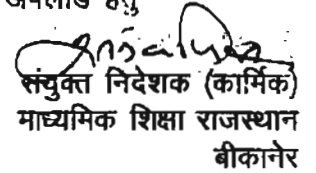 अपलोड हेतु
संयुक्त निदेशक (कार्मिक)
माध्यमिक शिक्षा राजस्थान
बीकानेर